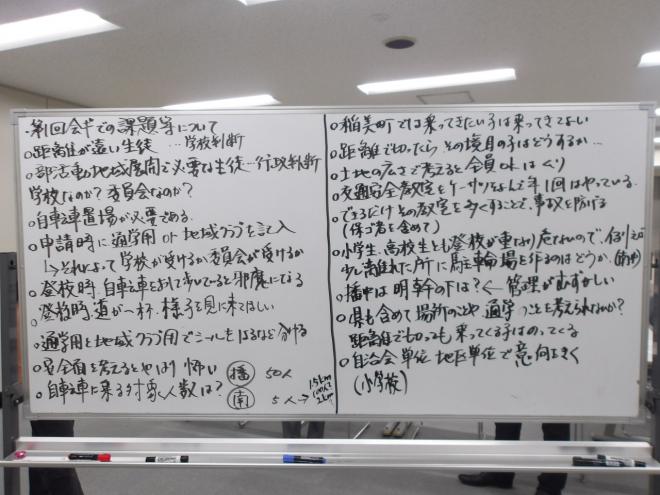 ・第1回会ギでの課題等について
○距離が遠い生徒…学校判断
○部活動地域展開で必要な生徒…行政判断
学校なのか？委員会なのか？
○自転車置場が必要である。
○申請時に通学用 or 地域クラブを記入
↳それによって学校が受けるか委員会が受けるか
○登校時、自転車をおして歩いていると邪魔になる
○登校時道が一杯、様子を見に来てほしい
○通学用と地域クラブ用でシールをはるなど分ける
○安全面を考えるとやはり怖い
○自転車に乗る対象人数は？
播 50人
南 5人→
1.5km
2km
○稲美町では乗ってきたい子は乗ってきてよい
○距離で切ったら、その境目の子はどうするか…
○土地の広さで考えると全員okはムリ
○交通安全教室をケーサツをよんで年1回はやっている。
○できるだけその教室を多くすることで、事故を防げる
(保ご者を含めて)
○小学生、高校生とも登校が重なり危ないので、
少し離れた所に駐輪場を作るのはどうか。(南中)
○播中は明幹の下は？←管理がむずかしい
○県も含めて場所のことや通学のことを考えられないか？
距離で切っても乗ってくる子はのってくる
○自治会単位、地区単位で意向をきく
(小学校)